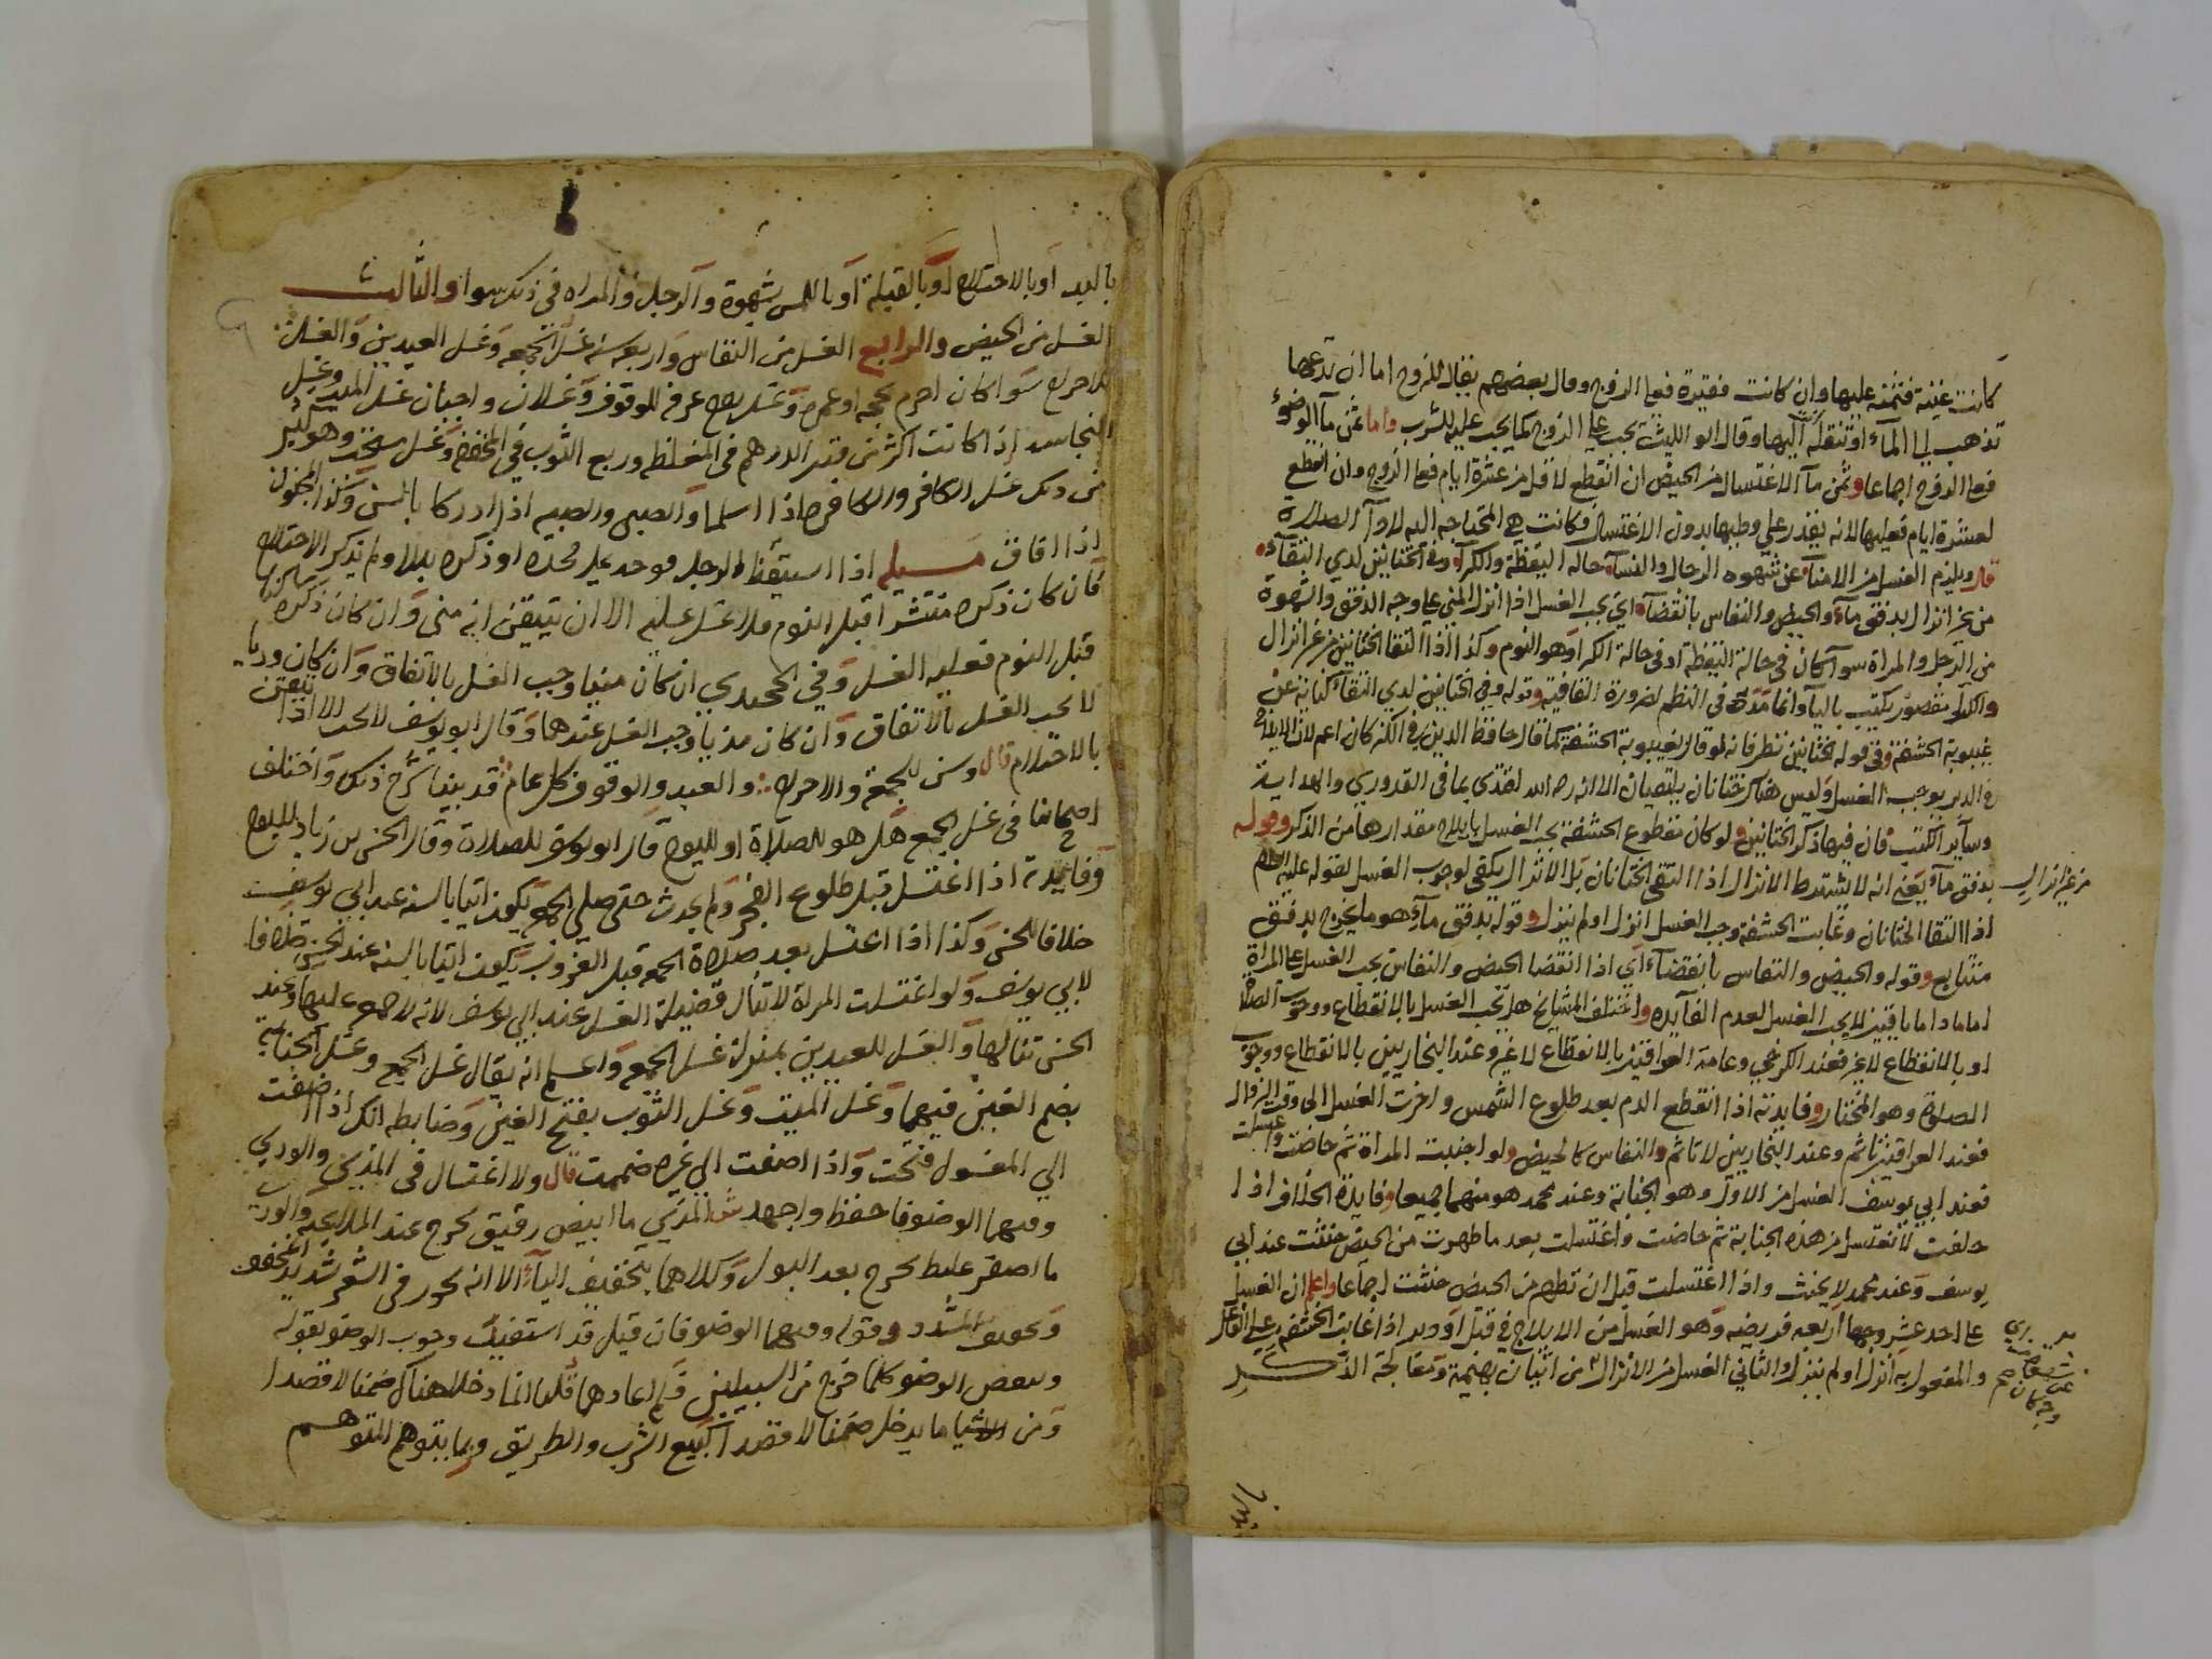 كانت غنية فثمنه عليها وان كانت فقيرة فعلى الزوج وقال بعضهم يقال للزوج اما ان تدعها
تذهب الى المآء او تنقله اليها وقال ابو الليث يجب على الزوج كما يجب عليه للشرب واما ثمن مآ الوضوء
فعلى الزوج اجماعا وثمن مآ الاغتسال من الحيض ان انقطع لاقل من عشرة ايام فعلى الزوج وان انقطع
لعشرة ايام فعليها لانه يقدر على وطيها بدون الاغتسال فكانت هي المحتاجه اليه لادآ الصلاة
قال ويلزم الغسل من الامنآ عن شهوه الرجال والنسآ حاله اليقظة والكرآ وفي الختانين لدي التقآء
من غير انزال بدفق مآء والحيض والنفاس بانقضآء اي يجب الغسل اذا انزل المني على وجه الدفق والشهوة
من الرجل والمراة سوآ كان في حالة اليقظة او في حالة الكرا وهو النوم وكذا اذا التقا الختانين من غير انزال
والكرآ مقصور يكتب باليآ وانما مده في النظم لضرورة القافية وقوله وفي الختانين لدي التقآ كناية عن
غيبوبة الحشفة وفي قوله ختانين نظر فانه لو قال بغيبوبة الحشفة كما قال حافظ الدين في الكنز كان اعم لان الايلاج
في الدبر يوجب الغسل وليس هناك ختانان يلتقيان الا انه رحمه الله اقتدى بما في القدوري والهداية
وسآير الكتب فان فيها ذكر الختانين ولو كان مقطوع الحشفة يجب الغسل بايلاج مقدارها من الذكر وقوله
من غير انزال بدفق مآء يعني انه لا يشترط الانزال اذا التقى الختانان بل الانزال يكفي لوجوب الغسل لقوله عليه السلام
اذا التقا الختانان وغابت الحشفة وجب الغسل انزل اولم ينزل وقوله بدفق مآء هو ما يخرج بدفق
متتابع وقوله والحيض والنفاس بانقضآء اي اذا انقضا الحيض والنفاس يجب الغسل على المراة
اما ماداما باقيين لا يجب الغسل لعدم الفآيده واختلف المشايخ هل يجب الغسل بالانقطاع ووجوب الصلاة
او بالانقطاع لا غير فعند الكرخي وعامة العراقيين بالانقطاع لا غير وعند البخاريين بالانقطاع ووجوب
الصلوة وهو المختار وفايدته اذا انقطع الدم بعد طلوع الشمس واخرت الغسل الى وقت الزوال
فعند العراقيين تاثم وعند البخاريين لا تاثم والنفاس كالحيض ولو اجنبت المراة ثم حاضت واغتسلت
فعند ابي يوسف الغسل من الاول وهو الجنابة وعند محمد هو منهما جميعا وفايدة الخلاف اذا
حلفت لا تغتسل من هذه الجنابة ثم حاضت واغتسلت بعد ما طهرت من الحيض حنثت عند ابي
يوسف وعند محمد لا يحنث واذا اغتسلت قبل ان تطهر من الحيض حنثت اجماعا واعلم ان الغسل
على احد عشر وجها اربعه فريضه وهو الغسل من الايلاج في قبل او دبر اذا غابت الحشفه على الفاعل
والمفعول به انزل اولم ينزل والثاني الغسل من الانزال من اتيان بهيمة ومعالجة الذكر
باليد او بالاحتلام او بالقبلة او باللمس بشهوة والرجل والمراه في ذلك سوا والثالث
الغسل من الحيض والرابع الغسل من النفاس واربعه سنه غسل الجمعه وغسل العيدين والغسل
للاحرام سوا كان احرم بحجه او عمره وغسل يوم عرفه للوقوف وغسلان واجبان غسل الميت وغسل
النجاسه اذا كانت اكثر من قدر الدرهم في المغلظه وربع الثوب في المخففه وغسل مستحب وهو كثير
من ذلك غسل الكافر والكافره اذا اسلما والصبي والصبيه اذا ادركا بالسن وكذا المجنون
اذا افاق مسيله اذا استيقظ الرجل فوجد على فخذه او ذكره بللا ولم يذكر الاحتلام
فان كان ذكره منتشرا قبل النوم فلا غسل عليه الا ان تيقن انه مني وان كان ذكره ساكنا
قبل النوم فعليه الغسل وفي الخجندي ان كان منيا وجب الغسل بالاتفاق وان كان وديا
لا يجب الغسل بالاتفاق وان كان مذيا وجب الغسل عندهما وقال ابو يوسف لا يجب الا اذا تيقن
بالاحتلام قال وسن للجمعة والاحرام والعيد والوقوف كل عام قد بينا شرح ذلك واختلف
اصحابنا في غسل الجمع هل هو للصلاة او لليوم قال ابو يوسف للصلاة وقال الحسن بن زياد لليوم
وفايدته اذا اغتسل قبل طلوع الفجر ولم يحدث حتى صلى الجمعه يكون اتيا بالسنه عند ابي يوسف
خلافا للحسن وكذا اذا اغتسل بعد صلاة الجمعه قبل الغروب يكون اتيا بالسنه عند الحسن خلافا
لابي يوسف ولو اغتسلت المراة لا تنال فضيلة الغسل عند ابي يوسف لانه لا جمعه عليها وعند
الحسن تنالها والغسل للعيدين بمنزلة غسل الجمعه واعلم انه يقال غسل الجمع وغسل الجنابة
بضم الغين فيهما وغسل الميت وغسل الثوب بفتح الغين وضابطه انك اذا اضفت
الي المغسول فتحت واذا اضفت الى غيره ضممت قال ولا اغتسال في المذي والودي
وفيهما الوضو فاحفظ واجهد ش المذي ما ابيض رقيق يخرج عند الملاعبه والودي
ما اصفر غليظ يخرج بعد البول وكلاهما بتخفيف اليآء الا انه يجوز في الشعر تشديد المخفف
وتخفيف المشدد وقوله وفيهما الوضو فان قيل قد استفيد وجوب الوضو بقوله
وينقض الوضو كلما خرج من السبيلين فلم اعادهما قلنا انما دخلا هناك ضمنا لا قصدا
ومن الاشيا ما يدخل ضمنا لا قصدا كبيع الشرب والطريق وربما يتوهم المتوهم